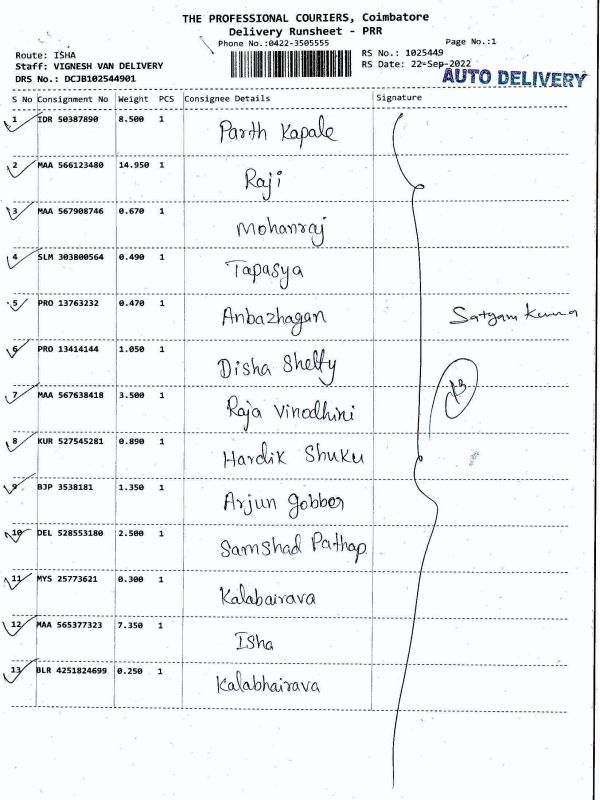 THE PROFESSIONAL COURIERS, Coimbatore
Delivery Runsheet - PRR
Phone No.:0422-3505555
Page No.:1
Route: ISHA
RS No.: 1025449
Staff: VIGNESH VAN DELIVERY
RS Date: 22-Sep-2022
DRS No.: DCJB102544901
AUTO DELIVERY
S No Consignment No Weight PCS Consignee Details Signature
1 IDR 50387890 8.500 1 Parth Kapale
2 MAA 566123480 14.950 1 Raji
3 MAA 567908746 0.670 1 Mohanraj
4 SLM 303800564 0.490 1 Tapasya
5 PRO 13763232 0.470 1 Anbazhagan Satyam Kuma
6 PRO 13414144 1.050 1 Disha Shetty
7 MAA 567638418 3.500 1 Raja Vinodhini 13
8 KUR 527545281 0.890 1 Hardik Shuku
9 BJP 3538181 1.350 1 Arjun gobber
10 DEL 528553180 2.500 1 Samshad Pathap
11 MYS 25773621 0.300 1 Kalabairava
12 MAA 565377323 7.350 1 Isha
13 BLR 4251824699 0.250 1 Kalabhairava